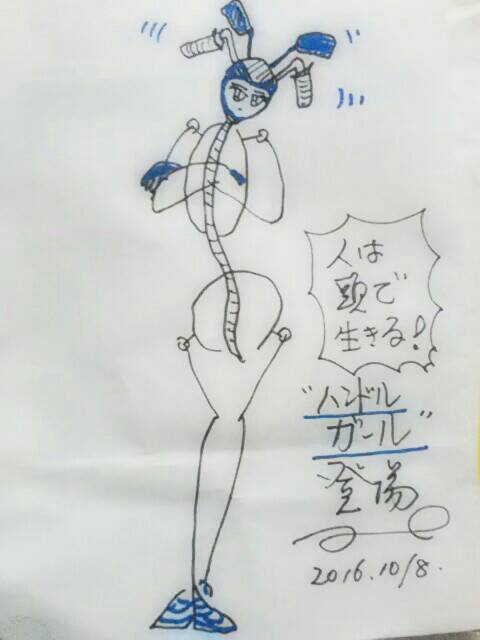 人は
頭で
生きる!
"ハンドル
ガール"
登場
2016.10/8.